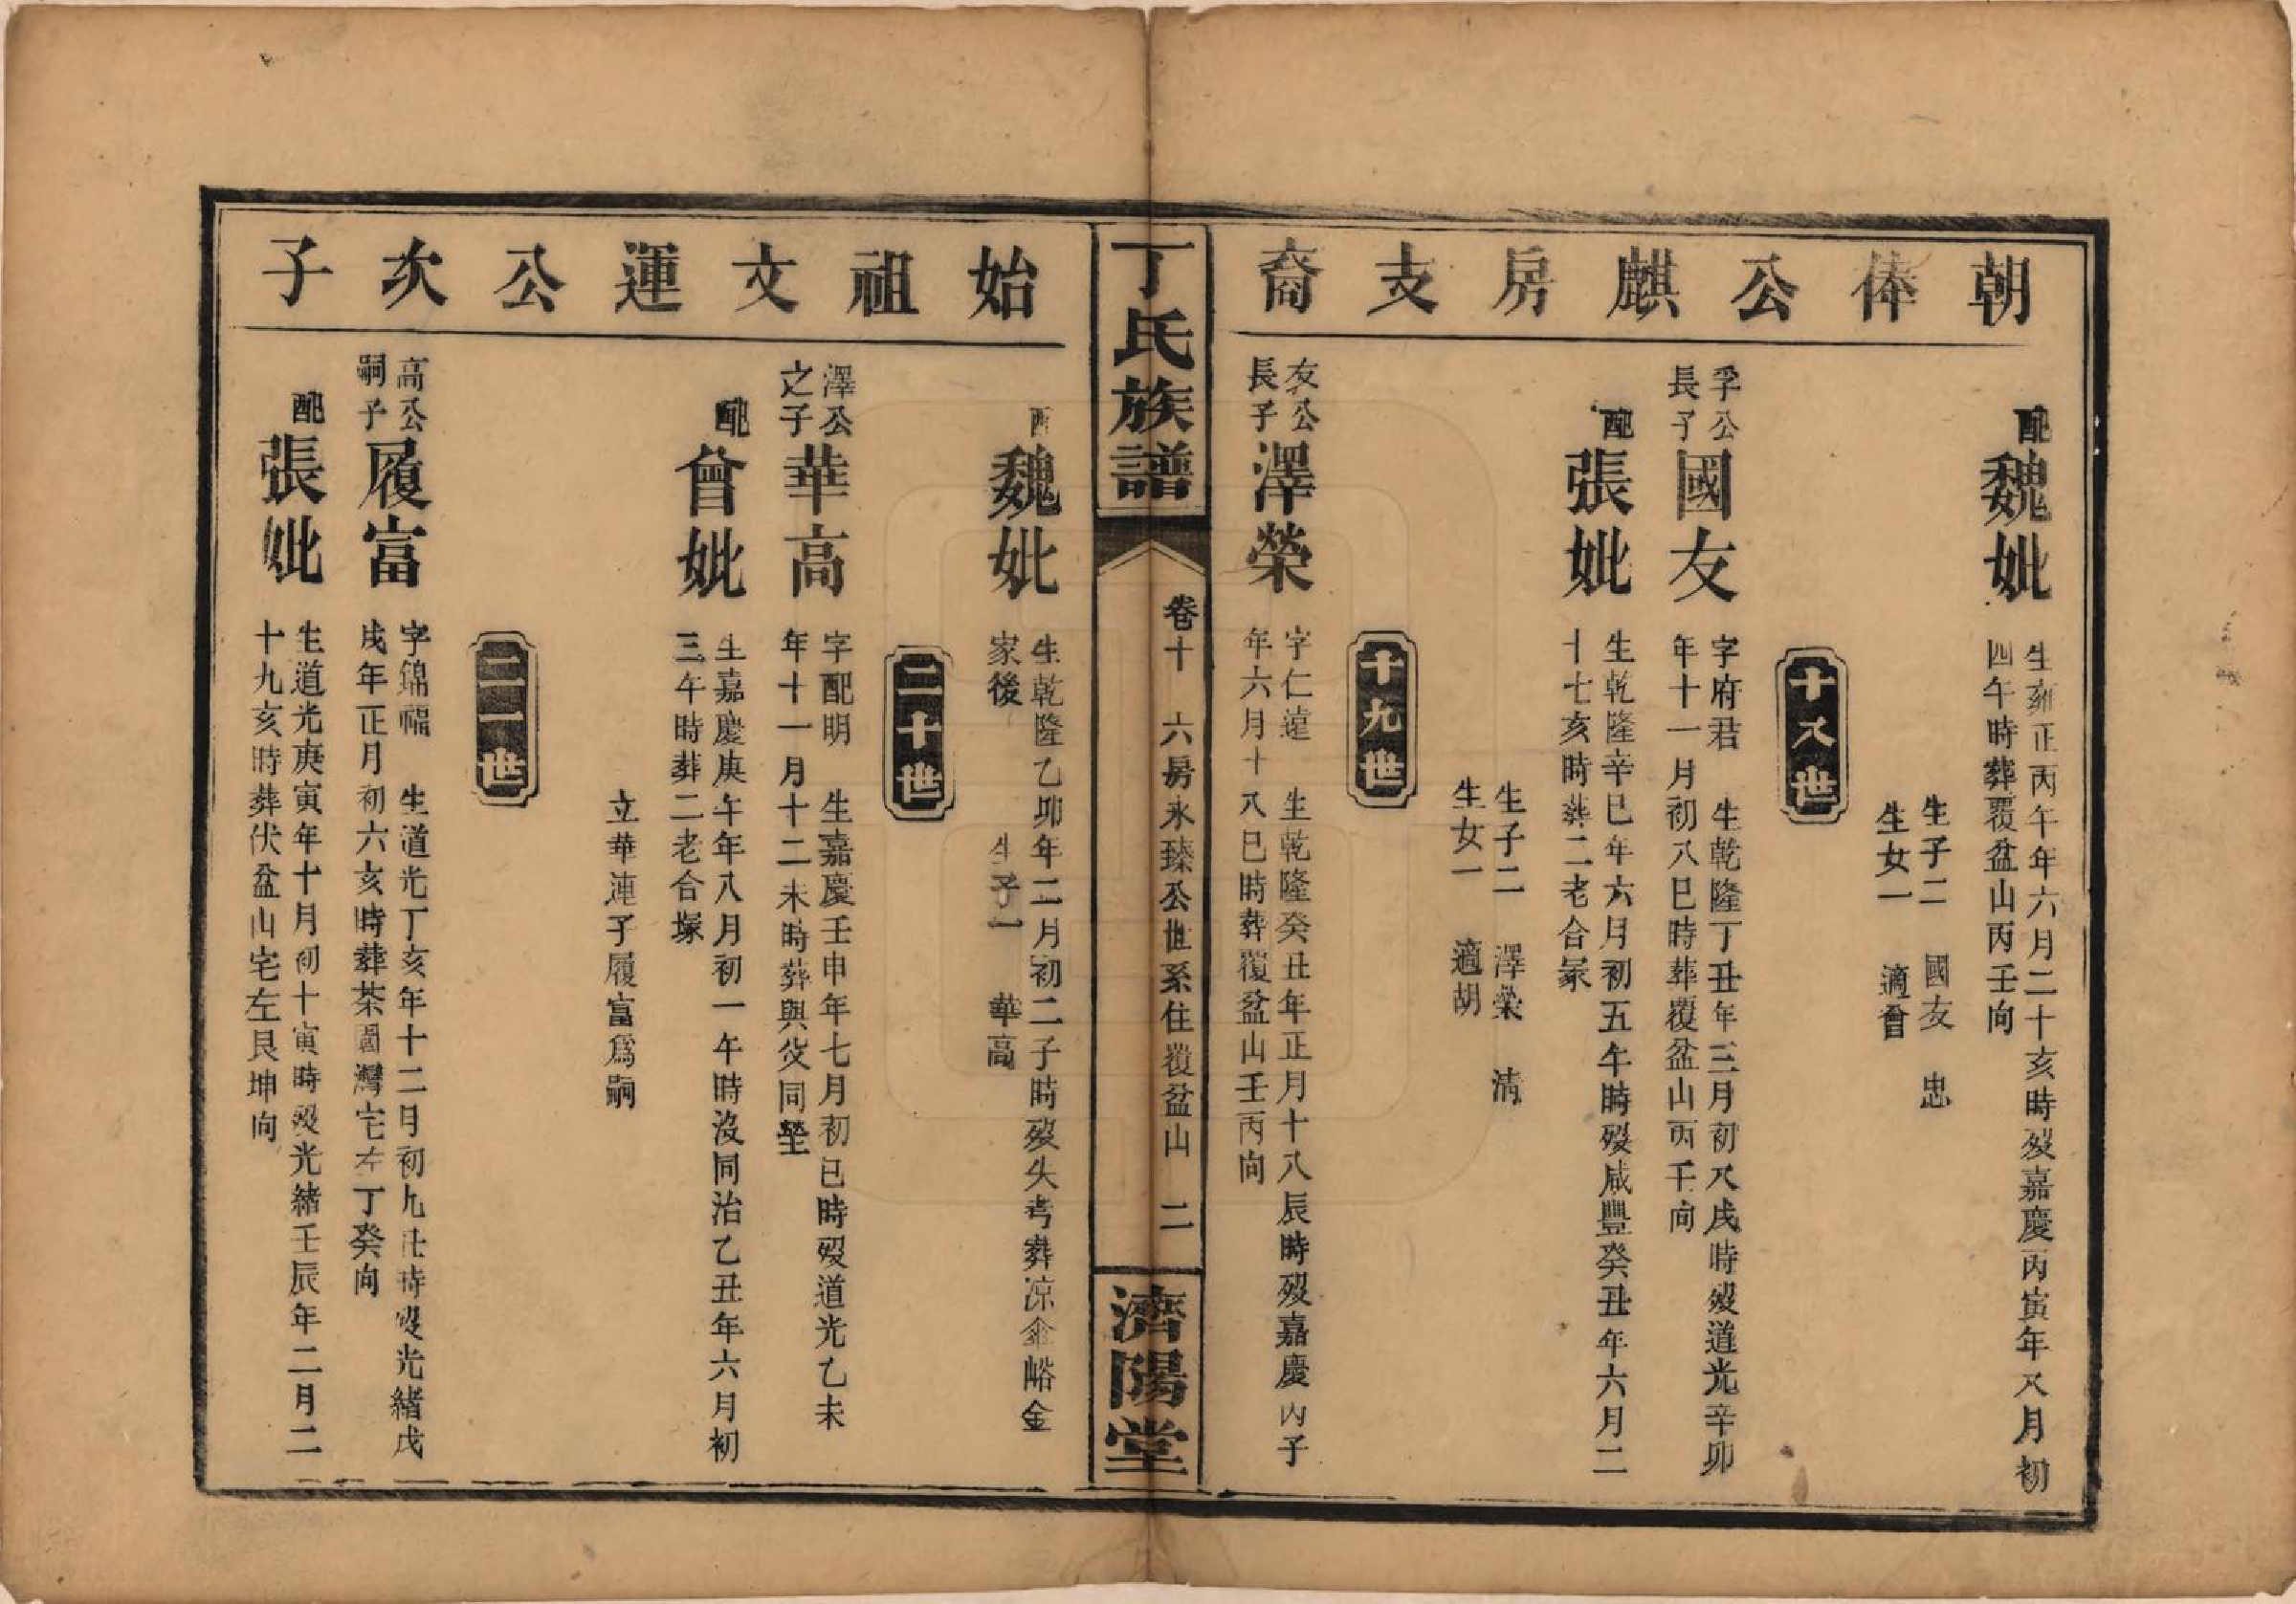 朝俸公麒房支裔
配
魏妣
生雍正丙午年六月二十亥時歿嘉慶丙寅年又月初
四午時葬覆盆山丙壬向
生子二 國友 忠
生女一 適曾
十八世
孚公
長子
國友
字府君 生乾隆丁丑年三月初又戌時歿道光辛卯
年十一月初八巳時葬覆盆山丙壬向
配
張妣
生乾隆辛巳年六月初五午時歿咸豐癸丑年六月二
十七亥時葬二老合冢
生子二 澤榮 清
生女一 適胡
十九世
友公
長子
澤榮
字仁遠 生乾隆癸丑年正月十八辰時歿嘉慶丙子
年六月十八巳時葬覆盆山壬丙向
丁氏族譜
卷十 六房永臻公世系住覆盆山 二
濟陽堂
始祖文運公次子
配
魏妣
生乾隆乙卯年二月初二子時歿失考葬凉傘峪金
家後 生子一 華高
二十世
澤公
之子
華高
字配明 生嘉慶壬申年七月初巳時歿道光乙未
年十一月十二未時葬與父同塋
配
曾妣
生嘉慶庚午年八月初一午時沒同治乙丑年六月初
三午時葬二老合塚
立華連子履富爲嗣
二一世
高公
嗣子
履富
字錦福 生道光丁亥年十二月初九丑時歿光緒戊
戌年正月初六亥時葬茶園灣宅左丁癸向
配
張妣
生道光庚寅年十月初十寅時歿光緒壬辰年二月二
十九亥時葬伏盆山宅左艮坤向